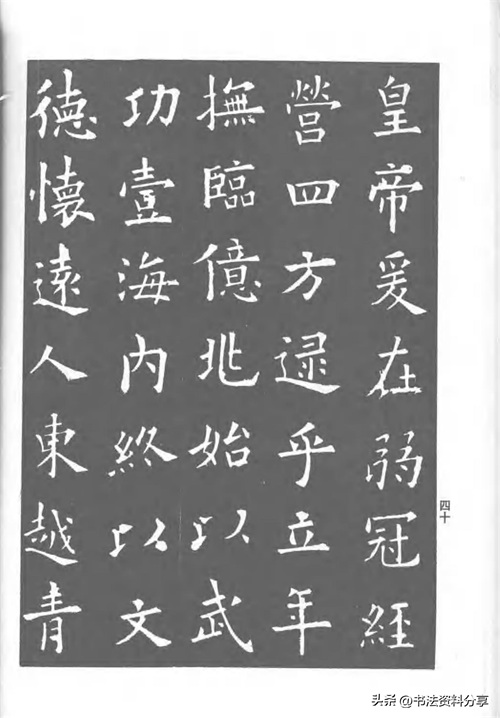 皇帝爰在弱冠經
營四方逯乎立年
撫臨億兆始以武
功壹海内終以文
德懷遠人東越青
四十
头条 @书法资料分享